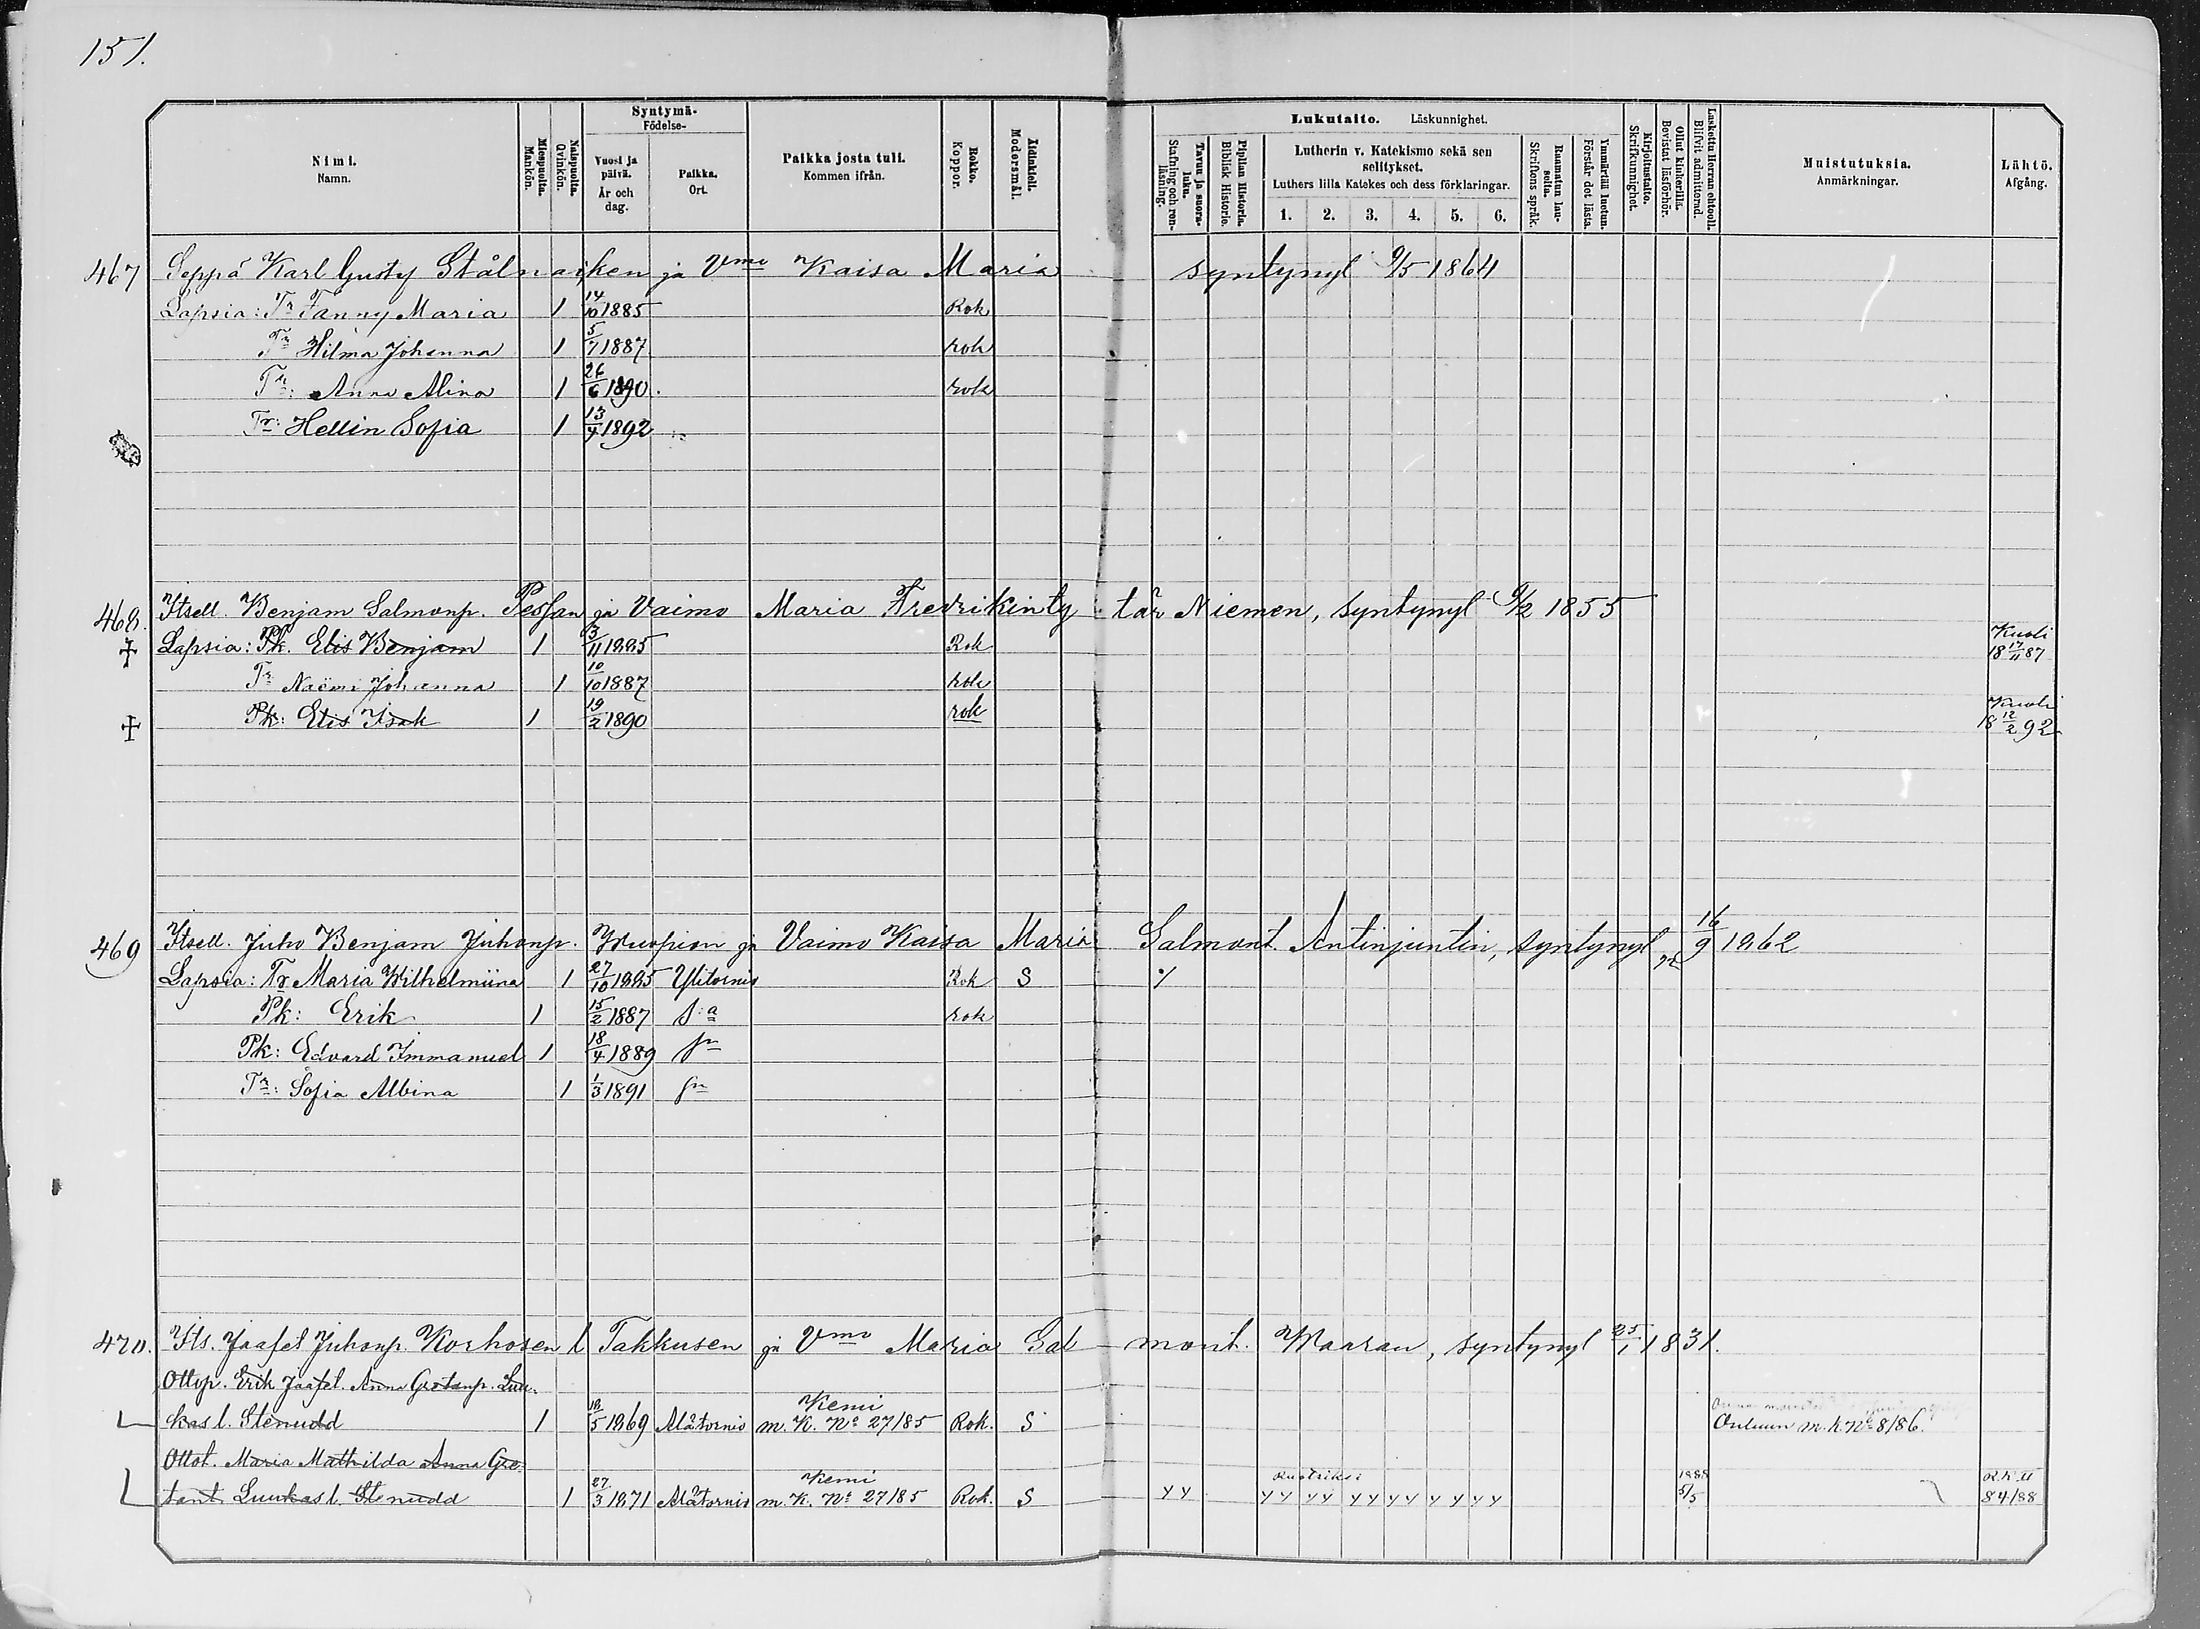 151.
Nimi. Namn.
Miespuolta. Mankön.
Naispuolta. Qvinkön.
Syntymä- Födelse-
Vuosi ja päivä. År och dag.
Paikka. Ort.
Paikka josta tuli. Kommen ifrån.
Rokko. Koppor.
Äidinkieli. Modersmål.
Lukutaito. Läskunnighet.
Tavuu ja suora- luku. Stafning och ren- läsning.
Piplian Historia. Biblisk Historie.
Lutherin v. Katekismo sekä sen selitykset.
Luthers lilla Katekes och dess förklaringar.
1. 2. 3. 4. 5. 6.
Raamatun lau- seita. Skriftens språk.
Ymmärtää luetun. Förstår det lästa.
Kirjoitustaito. Skrifkunnighet.
Ollut kinkerillä. Bevistat läsförhör.
Laskettu Herran ehtooll. Blifvit admitterad.
Muistutuksia. Anmärkningar.
Lähtö. Afgång.
467 Seppä Karl Gustf Stålnacken ja Vmo Kaisa Maria syntynyt 9/5 1864
Lapsia: Tr Fanny Maria 1 14/10 1885 Rok
Tr Hilma Johanna 1 5/7 1887 rok
Tr: Anna Alina 1 26/6 1890. rok
Tr: Hellin Sofia 1 13/4 1892
468. Itsell. Benjam Salmonp. ja Vaimo Maria Fredrikinty tär Niemen, syntynyt 9/2 1855
Lapsia: Pk. Elis Benjam 1 3/11 1885 Rok Kuoli 18 17/11 87
Tr Naëmi Johanna 1 10/10 1887 rok
Pk: Elis Isak 1 19/2 1890 rok Kuoli 18 12/2 92
469 Itsell. Juho Benjam Juhonp. Kuopion ja Vaimo Kaisa Maria Salmont. Antinjuntin, syntynyt 16/9 1862
Lapsia: Tr Maria Wilhelmiina 1 27/10 1885 Ylitornio Rok S
Pk: Erik 1 15/2 1887 s:a rok
Pk: Edvard Immanuel 1 18/4 1889 sn
Tr: Sofia Albina 1 1/3 1891 sn
470. Its. Jaafet Juhonp. Korhosen l Takkusen ja Vmo Maria Sal mont. Maaran, syntynyt 25/1 1831.
Ottop. Erik Jaafet. Anna Gretanp. Luu-
kas l. Stenudd 1 18/5 1869 Alatornio Kemi m. K. No 27/85 Rok. S Ouluun m. k. No 8/86.
Ottot. Maria Mathilda Anna Gre-
tant. Luukas l. Stenudd 1 27/3 1871 Alatornio Kemi m. K. No 27/85 Rok. S yy Ruotriksi yy yy yy yy y y y y 1888 5/5 R.K. II 84/88